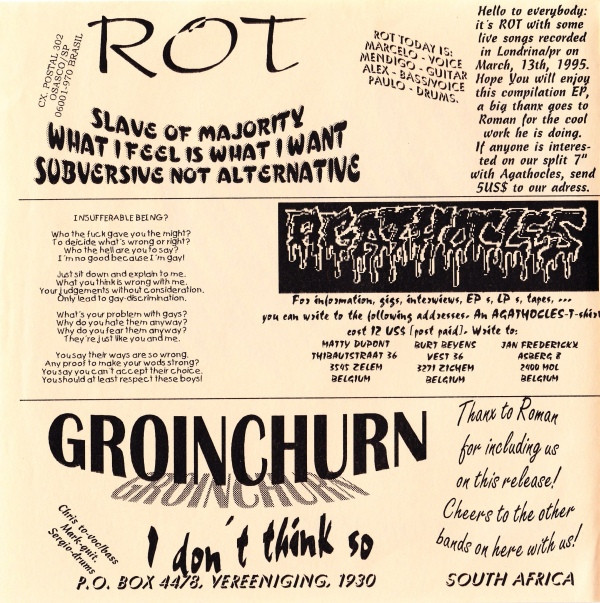 CX. POSTAL 302
OSASCO/SP
06001-970 BRASIL
ROT
ROT TODAY IS:
MARCELO - VOICE
MENDIGO - GUITAR
ALEX - BASS/VOICE
PAULO - DRUMS.
Hello to everybody:
it's ROT with some
live songs recorded
in Londrina/pr on
March, 13th, 1995.
Hope You will enjoy
this compilation EP,
a big thanx goes to
Roman for the cool
work he is doing.
If anyone is interes-
ted on our split 7"
with Agathocles, send
5US$ to our adress.
SLAVE OF MAJORITY
WHAT I FEEL IS WHAT I WANT
SUBVERSIVE NOT ALTERNATIVE
INSUFFERABLE BEING?
Who the fuck gave you the might?
To deicide what's wrong or right?
Who the hell are you to say?
I'm no good because I'm gay!
Just sit down and explain to me.
What you think is wrong with me.
Your judgements without consideration.
Only lead to gay-discrimination.
What's your problem with gays?
Why do you hate them anyway?
Why do you fear them anyway?
They're just like you and me.
You say their ways are so wrong.
Any proof to make your wods strong?
You say you can't accept their choice.
You should at least respect these boys!
AGATHOCLES
For information, gigs, interviews, EP s, LP s, tapes, ...
you can write to the following addresses. An AGATHOCLES-T-shirt
cost 12 US$ (post paid). Write to:
MATTY DUPONT
THIBAUTSTRAAT 36
3545 ZELEM
BELGIUM
BURT BEYENS
VEST 36
3271 ZICHEM
BELGIUM
JAN FREDERICKX
ASBERG 8
2400 MOL
BELGIUM
GROINCHURN
GROINCHURN
Chris to-voc/bass
Mark-guit.
Sergio-drums
I don't think so
P.O. BOX 4478, VEREENIGING, 1930
Thanx to Roman
for including us
on this release!
Cheers to the other
bands on here with us!
SOUTH AFRICA